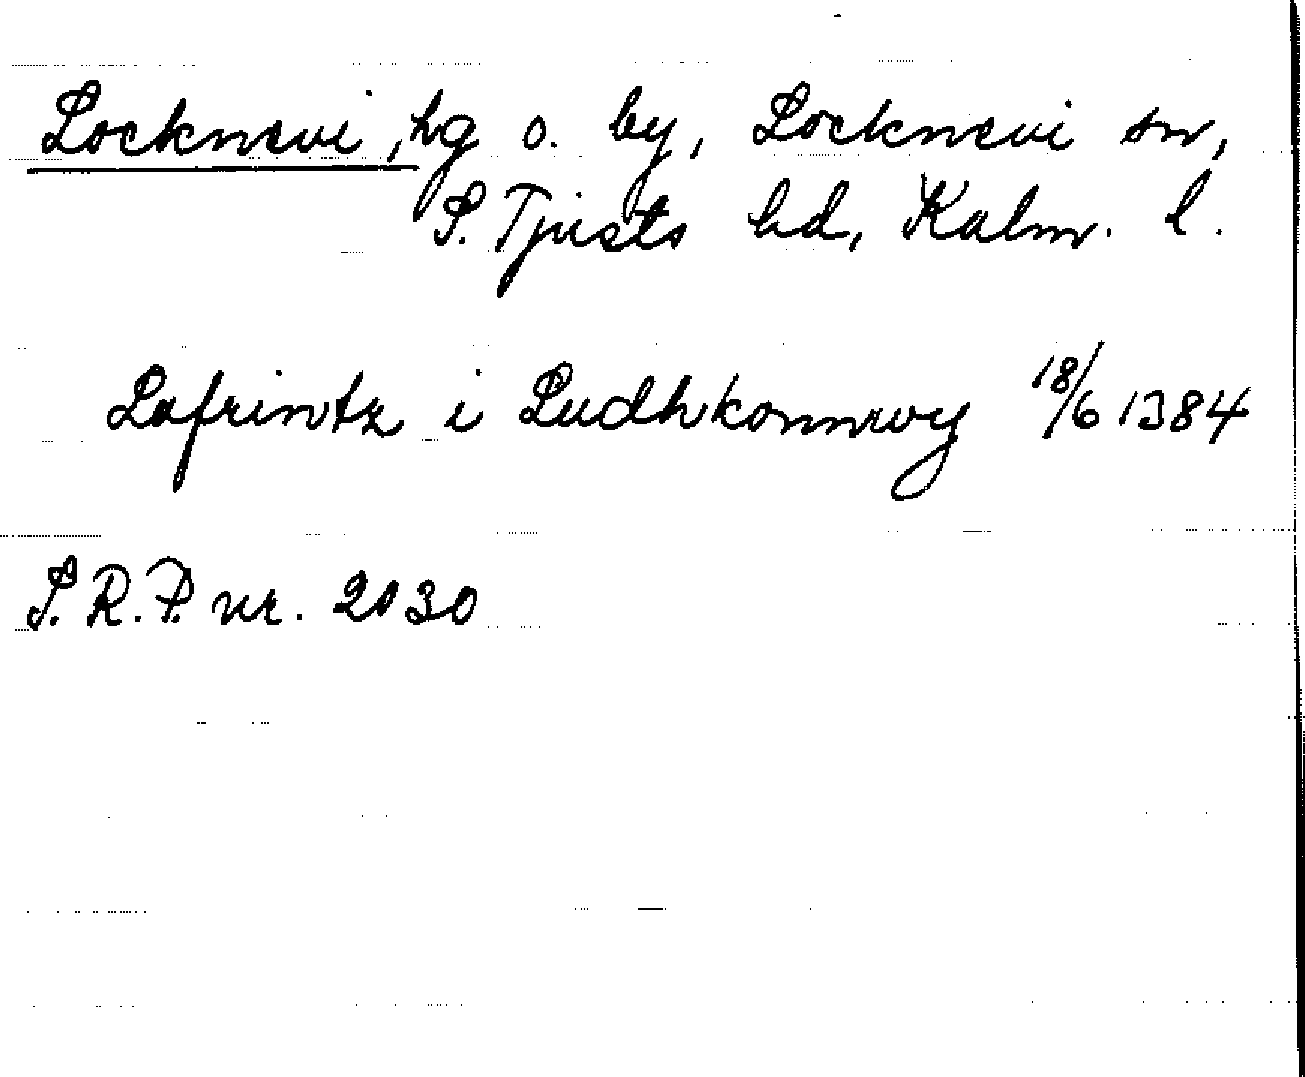 Locknevi, hg o. by, Locknevi sn,
S. Tjusts hd, Kalm. l.
Lafrintz i Ludhkonnwy 18/6 1384
S.R.P. nr. 2030